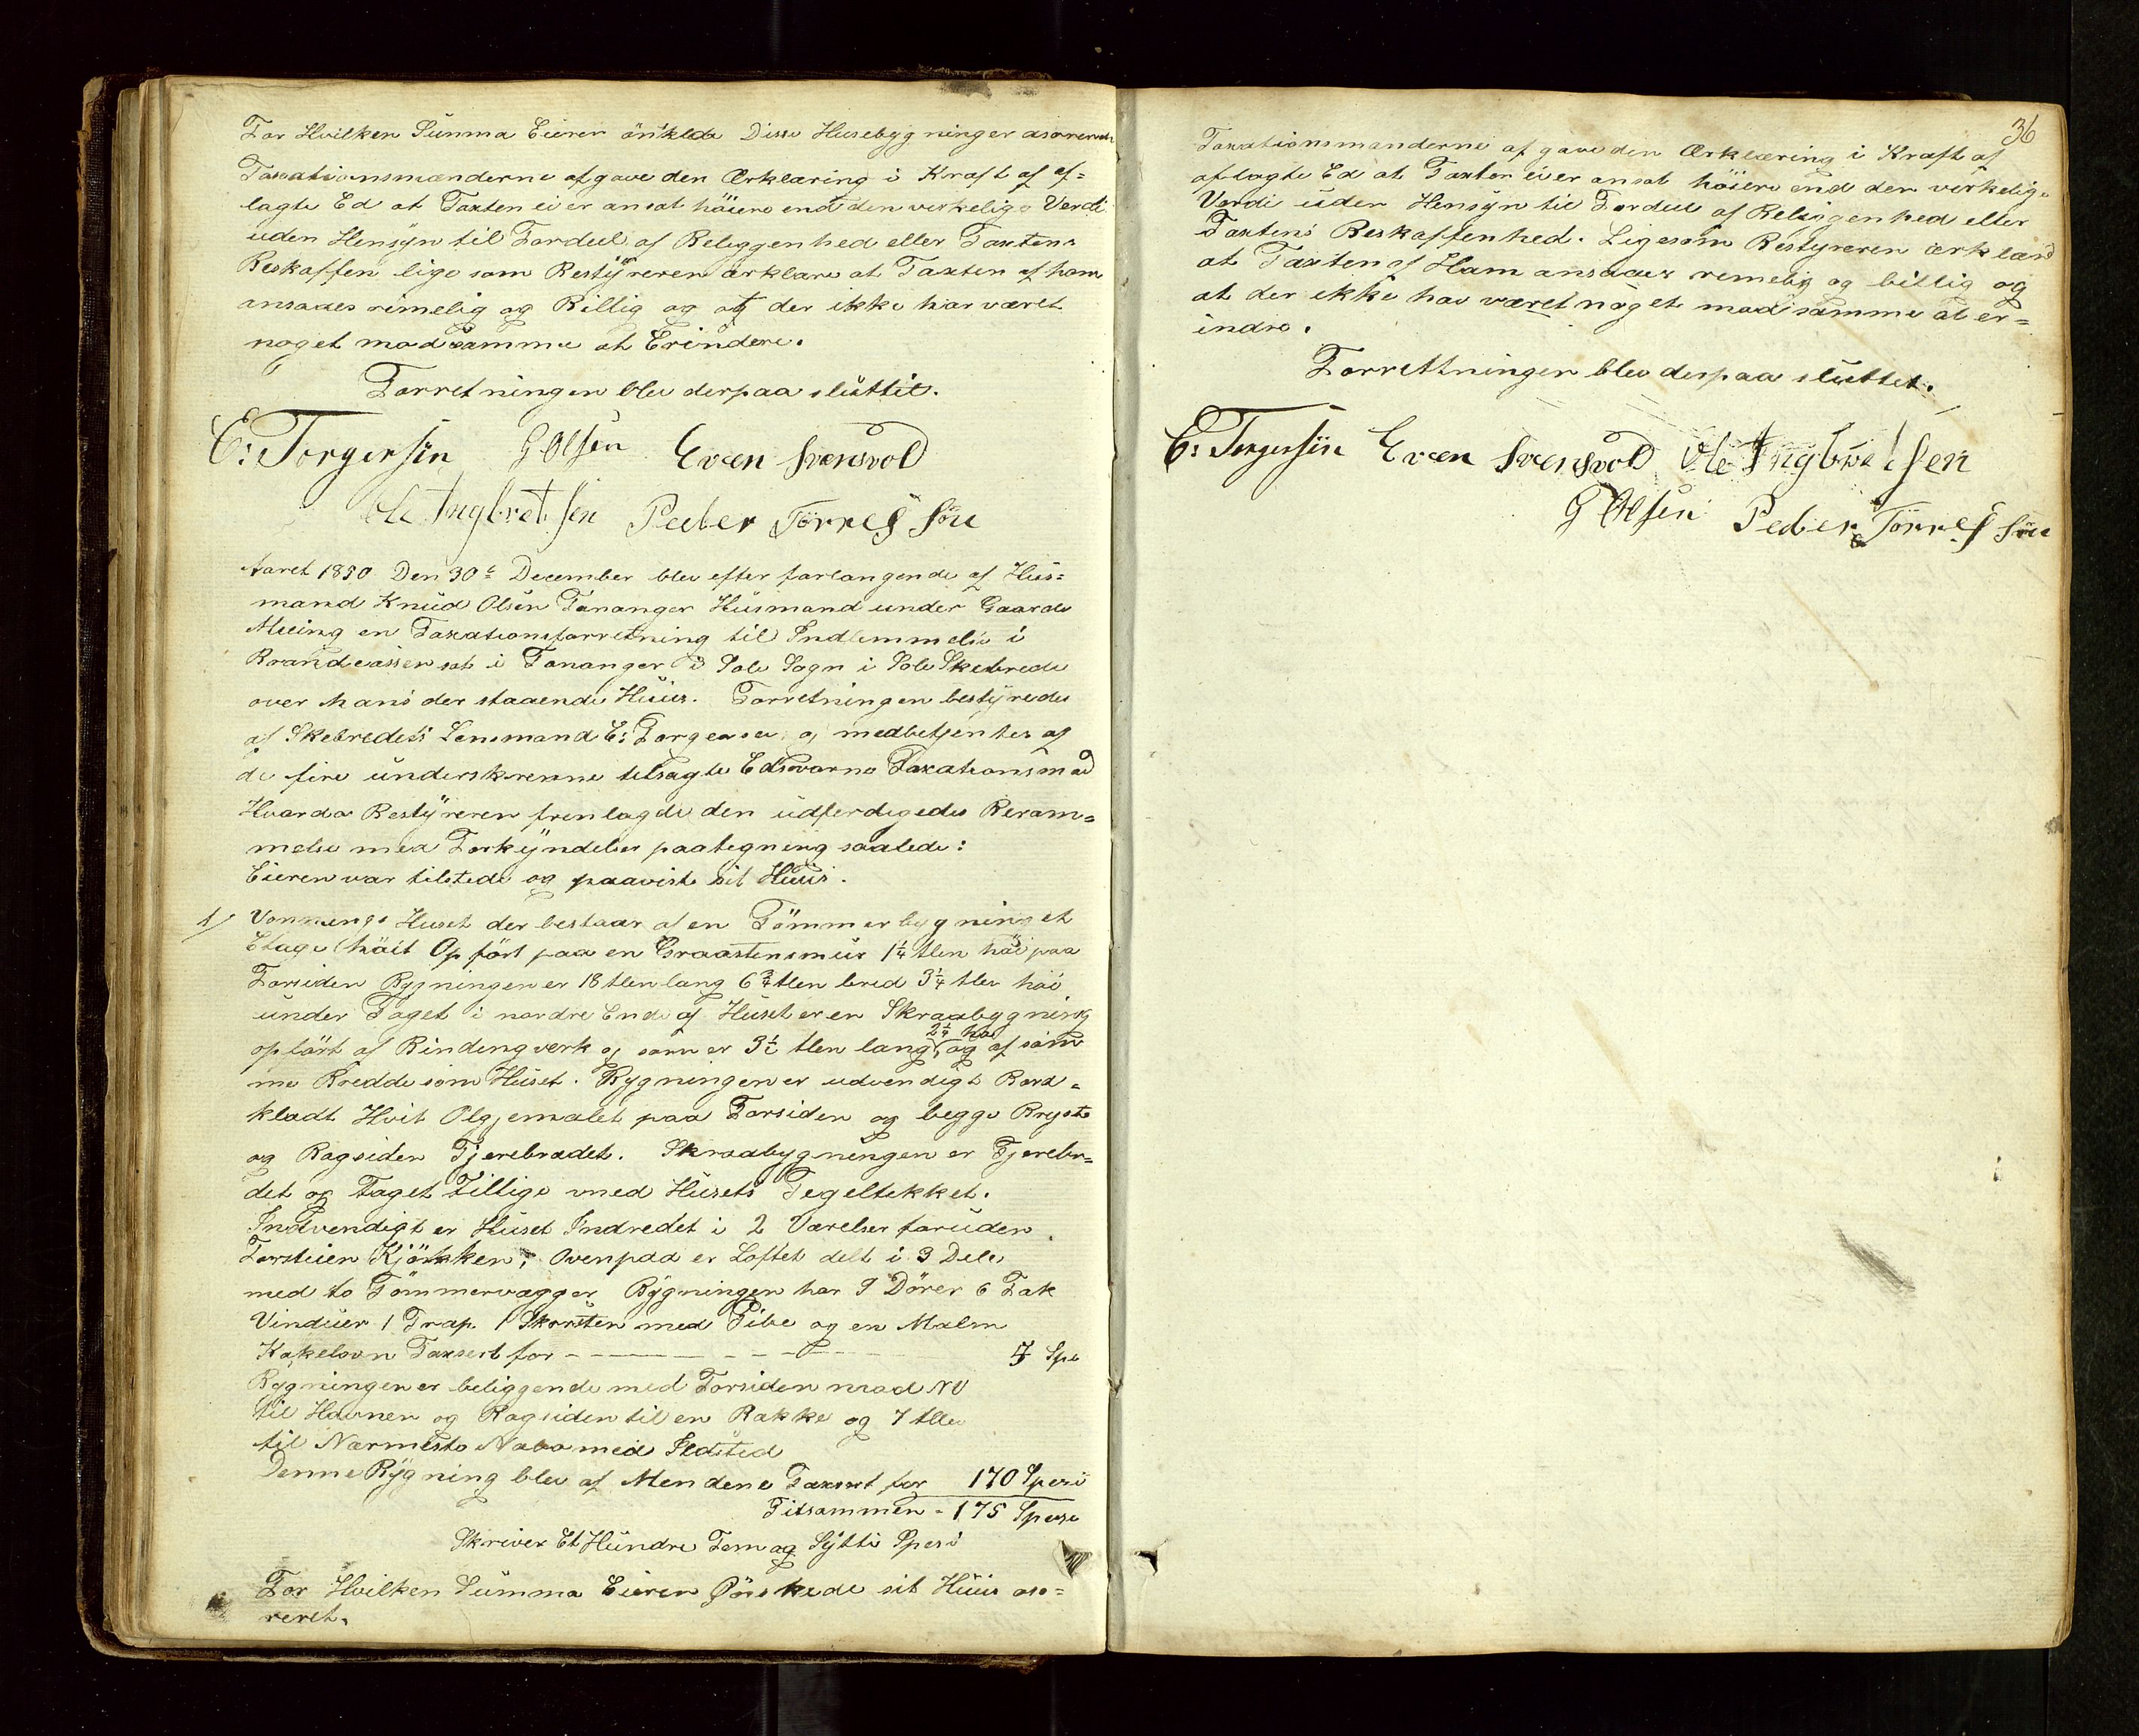 For Hvilken Summa Eieren önskede Disse Husebygninger asorereret
Taxationsmænderne afgave den Ærklæring i Kraft af af=
lagte Ed at Taxten ei er ansat höiere end den verkelige Verdi
uden Hensyn til Fordeel af Beleggenhed eller Taxtens
Beskaffen lige som Bestyreren ærklære at Taxten af ham
ansaaes rimelig og Billig og at der ikke har været
noget mod samme at Erindere.
Forretningen blev derpaa sluttet.
E: Torgersen G Olsen Even Svensvold
Ole Ingbretsen Peder Törres Sön
Aaret 1850 Den 30te December blev efter forlangende af Hus=
mand Knud Olsen Tananger Husmand under Gaarde
Meling en Taxationsforretning til Indlemmelse i
Brandcassen sat i Tananger i Sole Sogn i Sole Skebrede
over hans der staaende Huus. Forretningen bestyredes
af Skebredets Lensmand E: Torgersen og medbetjentes af
de fire underskrevne tilsagte Edsvorne Taxationsmæd
Hvorda Bestyreren fremlagde den udferdigedes Beram=
melse med Forkyndelses paategning saalede:
Eieren var tilstede og paaviste sit Huus.
1/ Vonnings Huset der bestaar af en Tömmerbygning et
Etage höit Opfört paa en Graastensmur 1 1/4 Alen höi paa
Forsiden Bygningen er 18 Alen lang 6 3/4 Alen bred 3 1/4 Alen höi
under Taget i nordre Ende af Huset er en Skraabygning
opfört af Bindingverk og som er 3 1/2 Alen lang 2 1/4 höi og af sam
me Bredde som Huset. Bygningen er udvendigt Bord=
kladt Hvit Olgjemalet paa Forsiden og begge Bryste
og Bagsiden Tjerebradet. Skraabygningen er Tjerebr=
det og Taget Tillige med Husets Tegeltekket.
Indvendigt er Huset Indredet i 2 Værelser foruden
Forstuen Kjökken, Ovenpaa er Loftet delt i 3 Dele
med to Tömmervægger Bygningen har 9 Dörer 6 Fak
Vinduer 1 Trap. 1 Skorsten med Pibe og en Malm
Kakelovn Taxsert for - - - - - - - 5 Spe
Bygningen er beliggende med Forsiden mod NV
til Havnen og Bagsiden til en Bakke og 7 Alen
til Nærmeste Nabo med Ildsted
Denne Bygning blev af Mendene Taxsert for 170 Spesi
Tilsammen - 175 Spesi
Skriver Et Hundre Fem og Sytti Spesi
For Hvilken Summa Eieren Önskede sit Huus aso=
reret.
36
Taxationsmanderne afgave den Ærklæring i Kraft af
aflagte Ed at Taxten ei er ansat höiere end den verkelige
Verdi uden Hensyn til Fordeel af Beliggenhed eller
Taxtens Beskaffenhed. Ligesom Bestyreren ærklærd
at Taxten af Ham ansaaes remelig og billig og
at der ikke hav været noget mod samme at er=
indre.
Forrettningen blev derpaa sluttet.
E: Torgersen Even Svensvold Ole Ingbretsen
G Olsen Peder Törres Sön